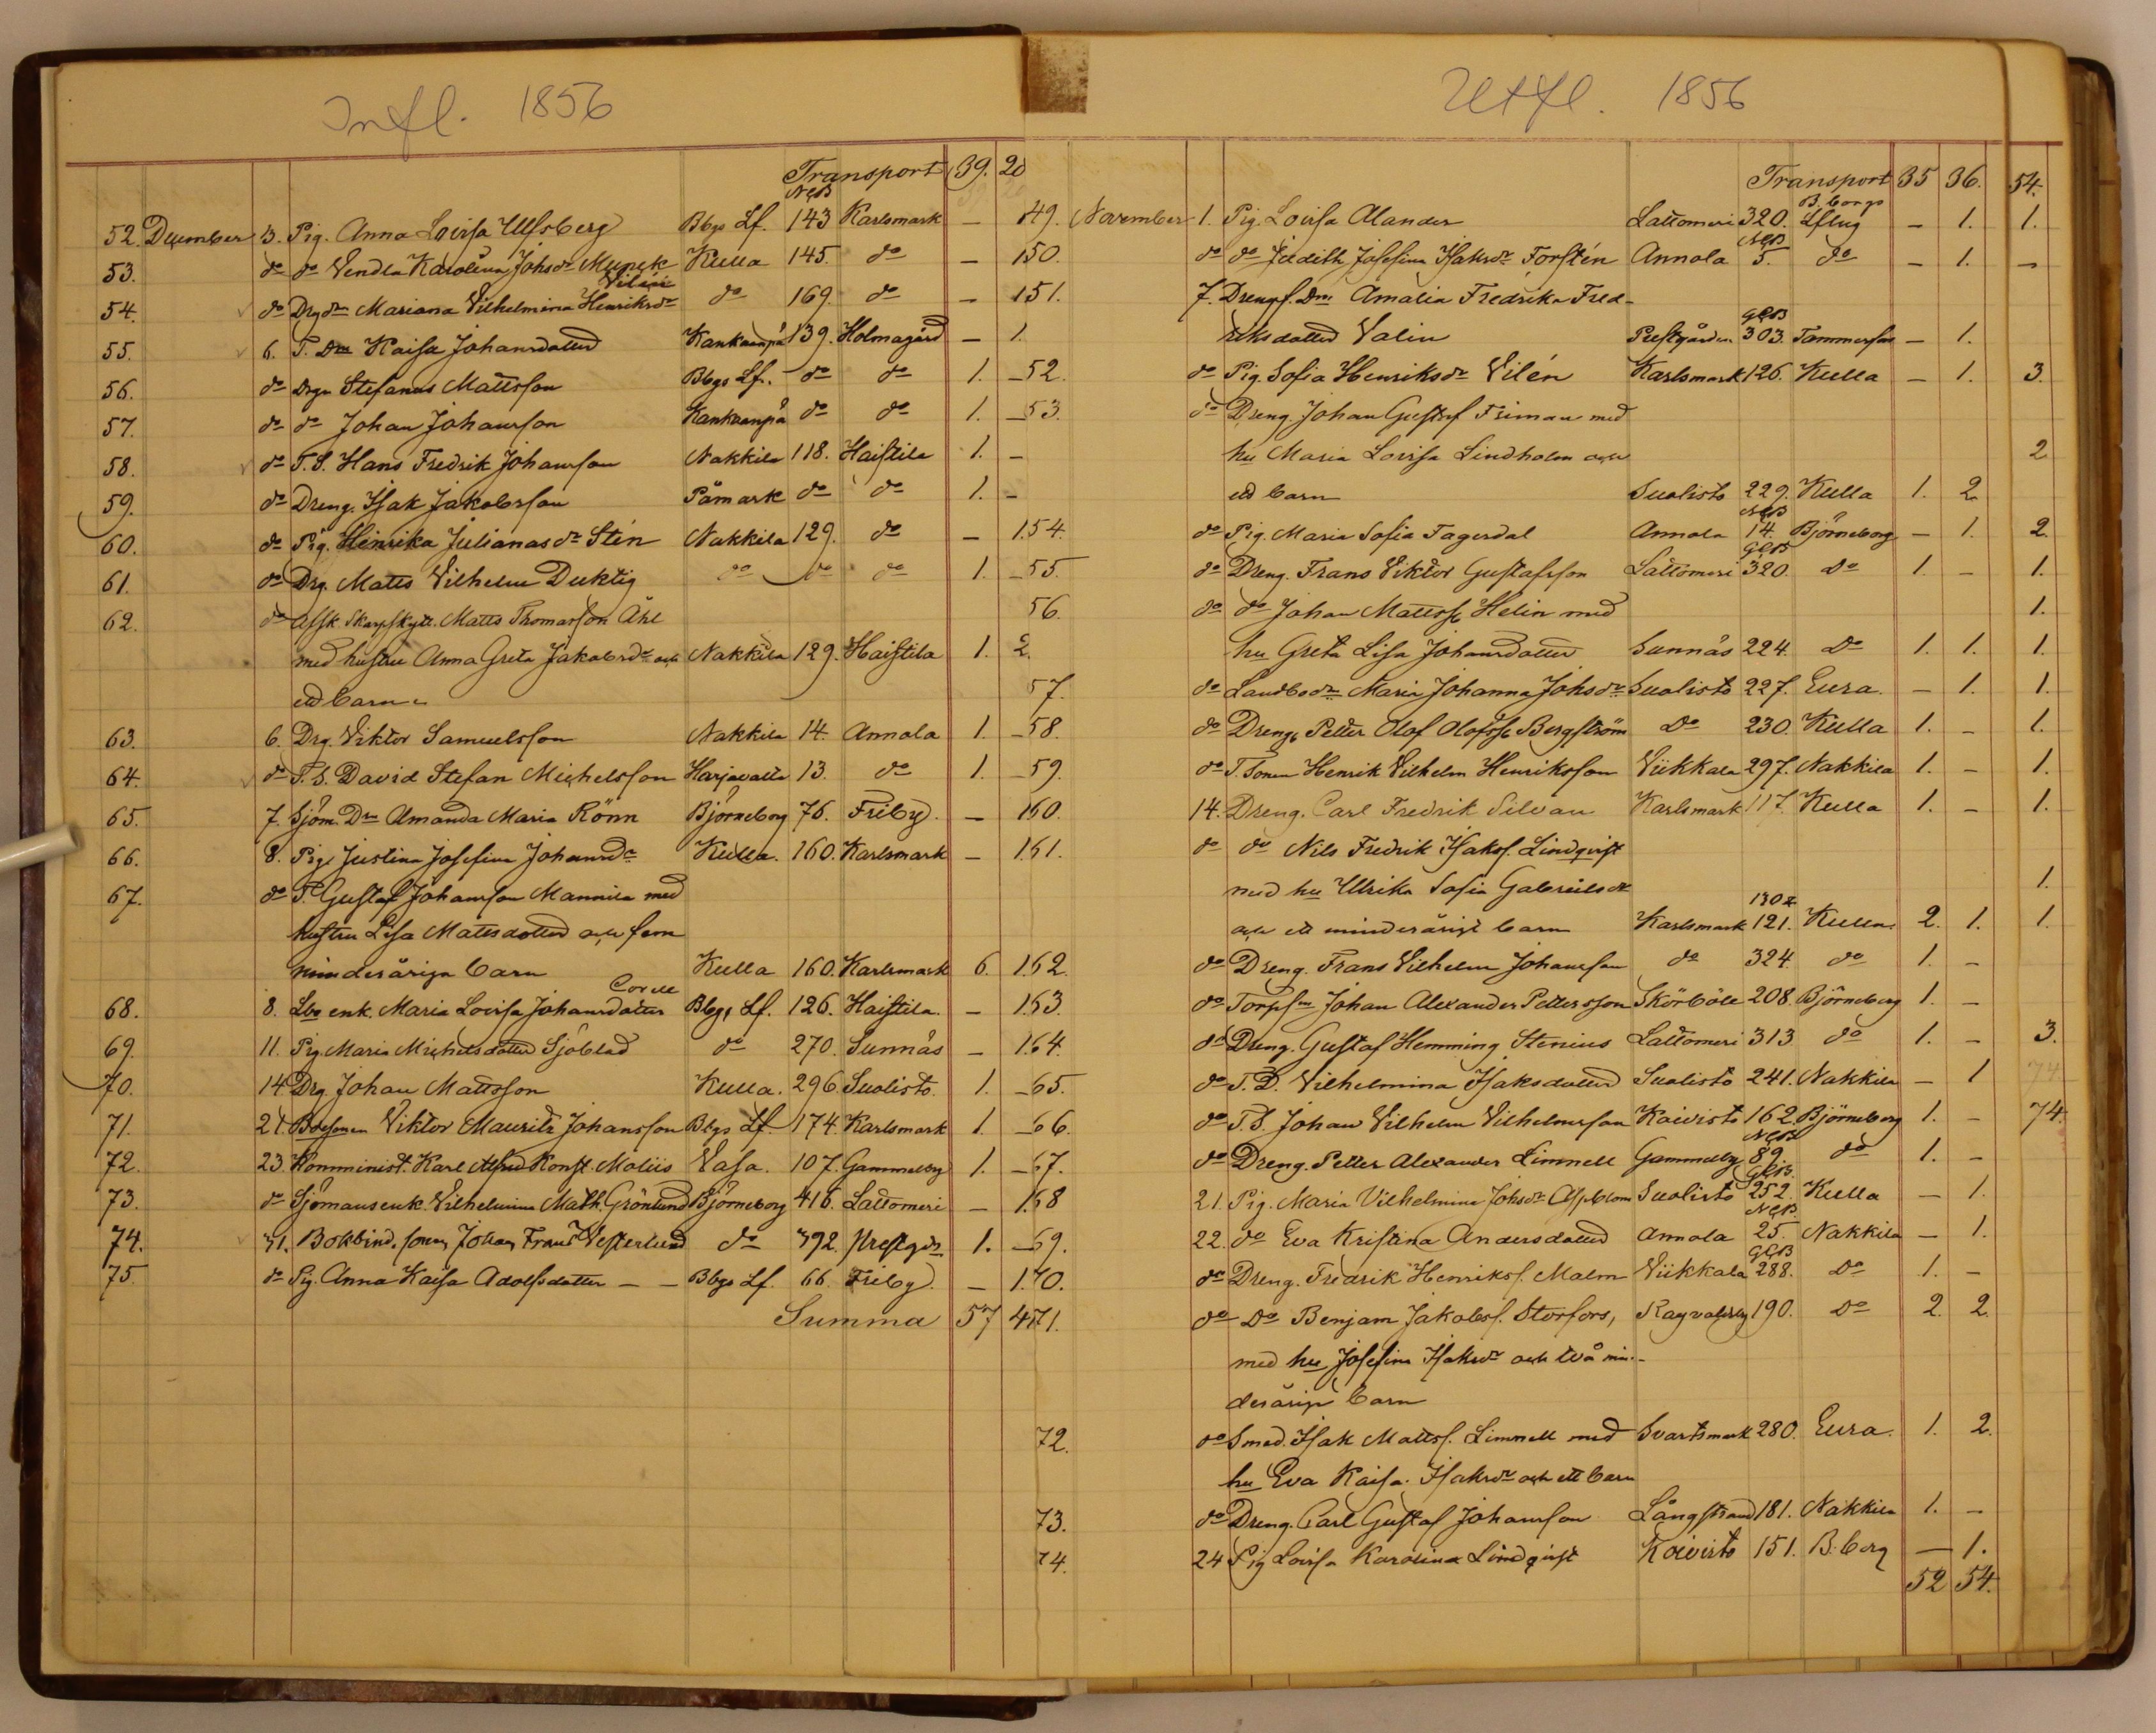 Infl. 1856
Transport 39. 20
NCB
52. December 3. Pig. Anna Lovisa Ulfsberg Bbgs Lf. 143 Karlsmark — 1
53. do do Vendla Karolina Johsdr Munck Kulla 145. do — 1
Vilén
54. do Drgdr Mariana Vilhelmina Henriksdr do 169. do — 1
55. 6. T. Dtr Kaisa Johansdotter Kankaanpä 139. Holmagård — 1.
56. do Drgn Stefanus Mattsson Bbgs Lf. do do 1. —
57. do do Johan Johansson Kankaanpä do do 1. —
58. do T.S. Hans Fredrik Johansson Nakkila 118. Haistila 1. —
59. do Dreng. Isak Jakobsson Påmark do do 1. —
60. do Pig. Henrika Julianasdr Stén Nakkila 129. do — 1
61. do Drg. Matts Vilhelm Duktig do do do 1. —
62. do Afsk Skarpskytt. Matts Thomasson Åhl
med hustru Anna Greta Jakobsdr och Nakkila 129. Haistila 1. 2.
ett barn
63. 6. Drg. Viktor Samuelsson Nakkila 14. Annola 1. —
64. do T.S. David Stefan Michelsson Harjavalta 13. do 1. —
65. 7. Sjöm. Dtr Amanda Maria Rönn Björneborg 76. Friby. — 1
66. 8. Pig. Justina Josefina Johansdr Kulla. 160. Karlsmark — 1
67. do T. Gustaf Johansson Mannila med
hustru Lisa Mattsdotter och fem
minderåriga barn Kulla 160. Karlsmark 6. 1
Corell
68. 8. Lbo enk. Maria Lovisa Johansdotter Bbgs Lf. 126. Haistila. — 1
69. 11. Pig. Maria Michelsdotter Sjöblad do 270. Sunnäs — 1
70. 14. Drg. Johan Mattsson Kulla. 296. Suolisto. 1. —
71. 21. Bdesonen Viktor Mauritz Johansson Bbgs Lf. 174. Karlsmark 1. —
72. 23. Komminist. Karl Alfred Konst. Moliis Vasa. 107. Gammelby 1. —
73. do Sjömansenk. Vilhelmina Math. Grönlund Björneborg 416. Lattomeri — 1
74. 31. Bokbind. sonen Johan Frans Vesterlund do 392. Prestgdn 1. —
75. do Pig. Anna Kaisa Adolfsdotter — — Bbgs Lf. 66. Friby. — 1
Summa 57 47
Utfl. 1856
Transport 35 36. 54.
B.borgs
49. November 1. Pig. Lovisa Alander Lattomeri 320. Lflng — 1. 1.
NCB
50. do do Judith Josefina Isaksdr Forstén Annola 5. do — 1. —
51. 7. Drengs. Dtr Amalia Fredrika Fred-
GCB
riksdotter Valin Prestgården 303. Tammerfors — 1.
52. do Pig. Sofia Henriksdr Vilén Karlsmark 126. Kulla — 1. 3.
53. do Dreng. Johan Gustaf Friman med
hu Maria Lovisa Lindholm och 2
ett barn Suolisto 229. Kulla 1. 2.
NCB
54. do Pig. Maria Sofia Fagerdal Annola 14. Björneborg — 1. 2.
GCB
55. do Dreng. Frans Viktor Gustafsson Lattomeri 320. Do 1. — 1.
56. do do Johan Mattss. Helin med 1.
hu Greta Lisa Johansdotter Sunnäs 224. Do 1. 1. 1.
57. do Landbodr Maria Johanna Johsdr Suolisto 227. Eura. — 1. 1.
58. do Dreng. Petter Olof Olofss. Bergström Do 230. Kulla 1. — 1.
59. do T. Sonen Henrik Vilhelm Henriksson Viikkala 297. Nakkila 1. — 1.
60. 14. Dreng. Carl Fredrik Silvan Karlsmark 117. Kulla 1. — 1.
61. do do Nils Fredrik Isakss. Lindqvist
med hu Ulrika Sofia Gabrielsdr 1.
130 &
och ett minderårigt barn Karlsmark 121. Kulla 2. 1. 1.
62. do Dreng. Frans Vilhelm Johansson do 324. do 1. —
63. do Torpsn Johan Alexander Pettersson Skörböle 208. Björneborg 1. —
64. do Dreng. Gustaf Hemming Stenius Lattomeri 313 do 1. — 3.
65. do T.D. Vilhelmina Isaksdotter Suolisto 241. Nakkila — 1 74
66. do T.S. Johan Vilhelm Vilhelmsson Koivisto 162. Björneborg 1. — 74.
NCB
67. do Dreng. Petter Alexander Limnell Gammelby 89. do 1. —
GCB
68 21. Pig. Maria Vilhelmina Johsdr Asplom Suolisto 252. Kulla — 1.
NCB
69. 22. do Eva Kristina Andersdotter Annola 25. Nakkila — 1.
GCB
70. do Dreng. Fredrik Henrikss. Malm Viikkala 288. Do 1. —
71. do Do Benjam Jakobss. Storfors, Ragvaldsby 190. Do 2. 2.
med hu Josefina Isaksdr och två min-
deråriga barn
72. do Smed. Isak Mattss. Limnell med Svartsmark 280. Eura. 1. 2.
hu Eva Kaisa Isaksdr och ett barn
73. do Dreng. Carl Gustaf Johansson Långstrand 181. Nakkila 1. —
74. 24 Pig Lovisa Karolina Lindqvist Koivisto 151. B.borg — 1.
52 54.